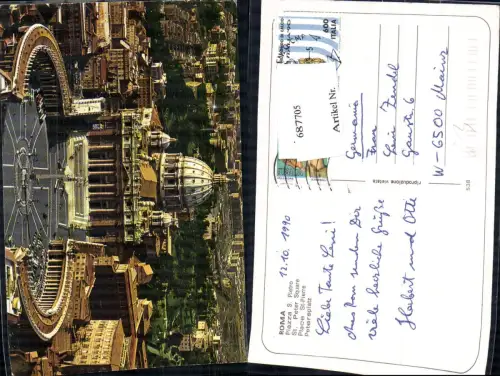 ROMA
Piazza S. Pietro
St. Peter Square
Place St-Pierre
Petersplatz
12.10.1990
Liebe Tante Leni!
Aus Rom senden Dir
viele herzliche Grüße
Herbert und Otti
ITALIA
600
687705
Artikel Nr.
Germania
Frau
Leni Zendel
W-6500 Mainz
Riproduzione vietata